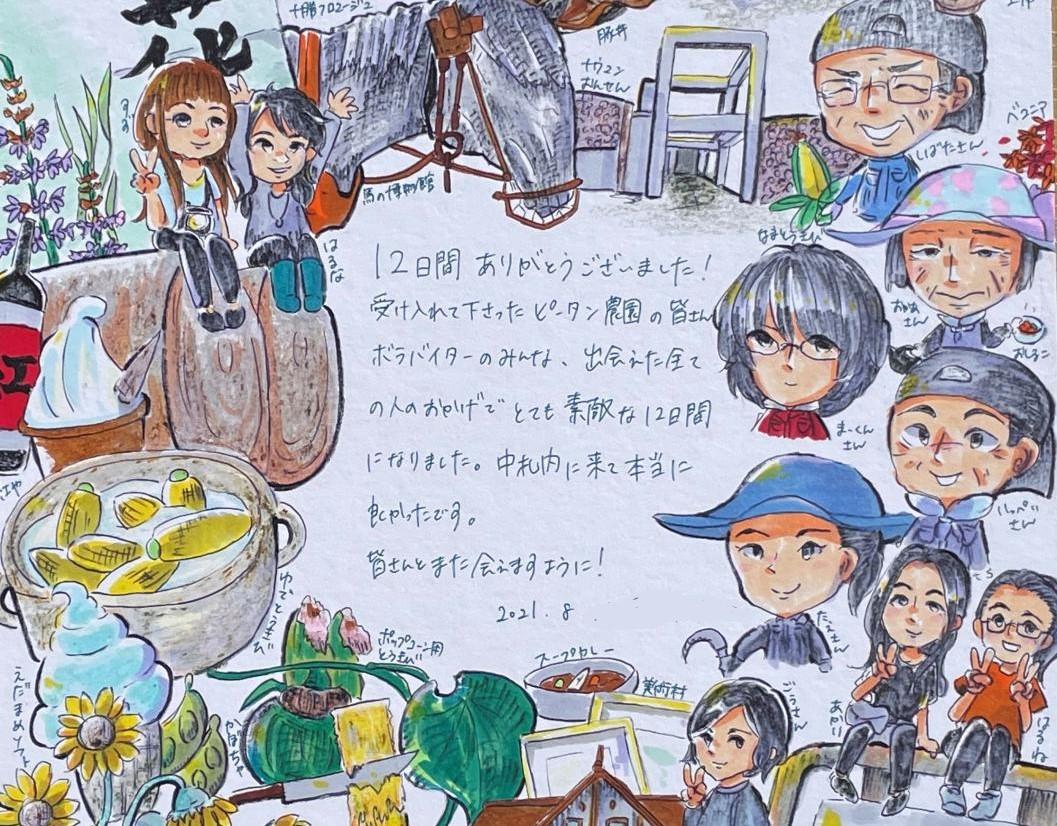 十勝フロマージュ
豚丼
ナウマン
おんせん
ベゴニア
しばたさん
馬の博物館
はるな
なまとうきび
おかあ
さん
おしるこ
まーくん
さん
いっぺい
さん
12日間 ありがとうございました!
受け入れて下さった ピータン農園の皆さん
ボラバイターのみんな、出会えた全て
の人のおかげで とても 素敵な12日間
になりました。中札内に来て本当に
良かったです。
皆さんとまた会えますように!
2021.8
ゆでとうきび
ポップコーン用
とうきび
えだまめソフト
かぼちゃ
スープカレー
美術村
たえさん
ごうさん
あかり
はるね